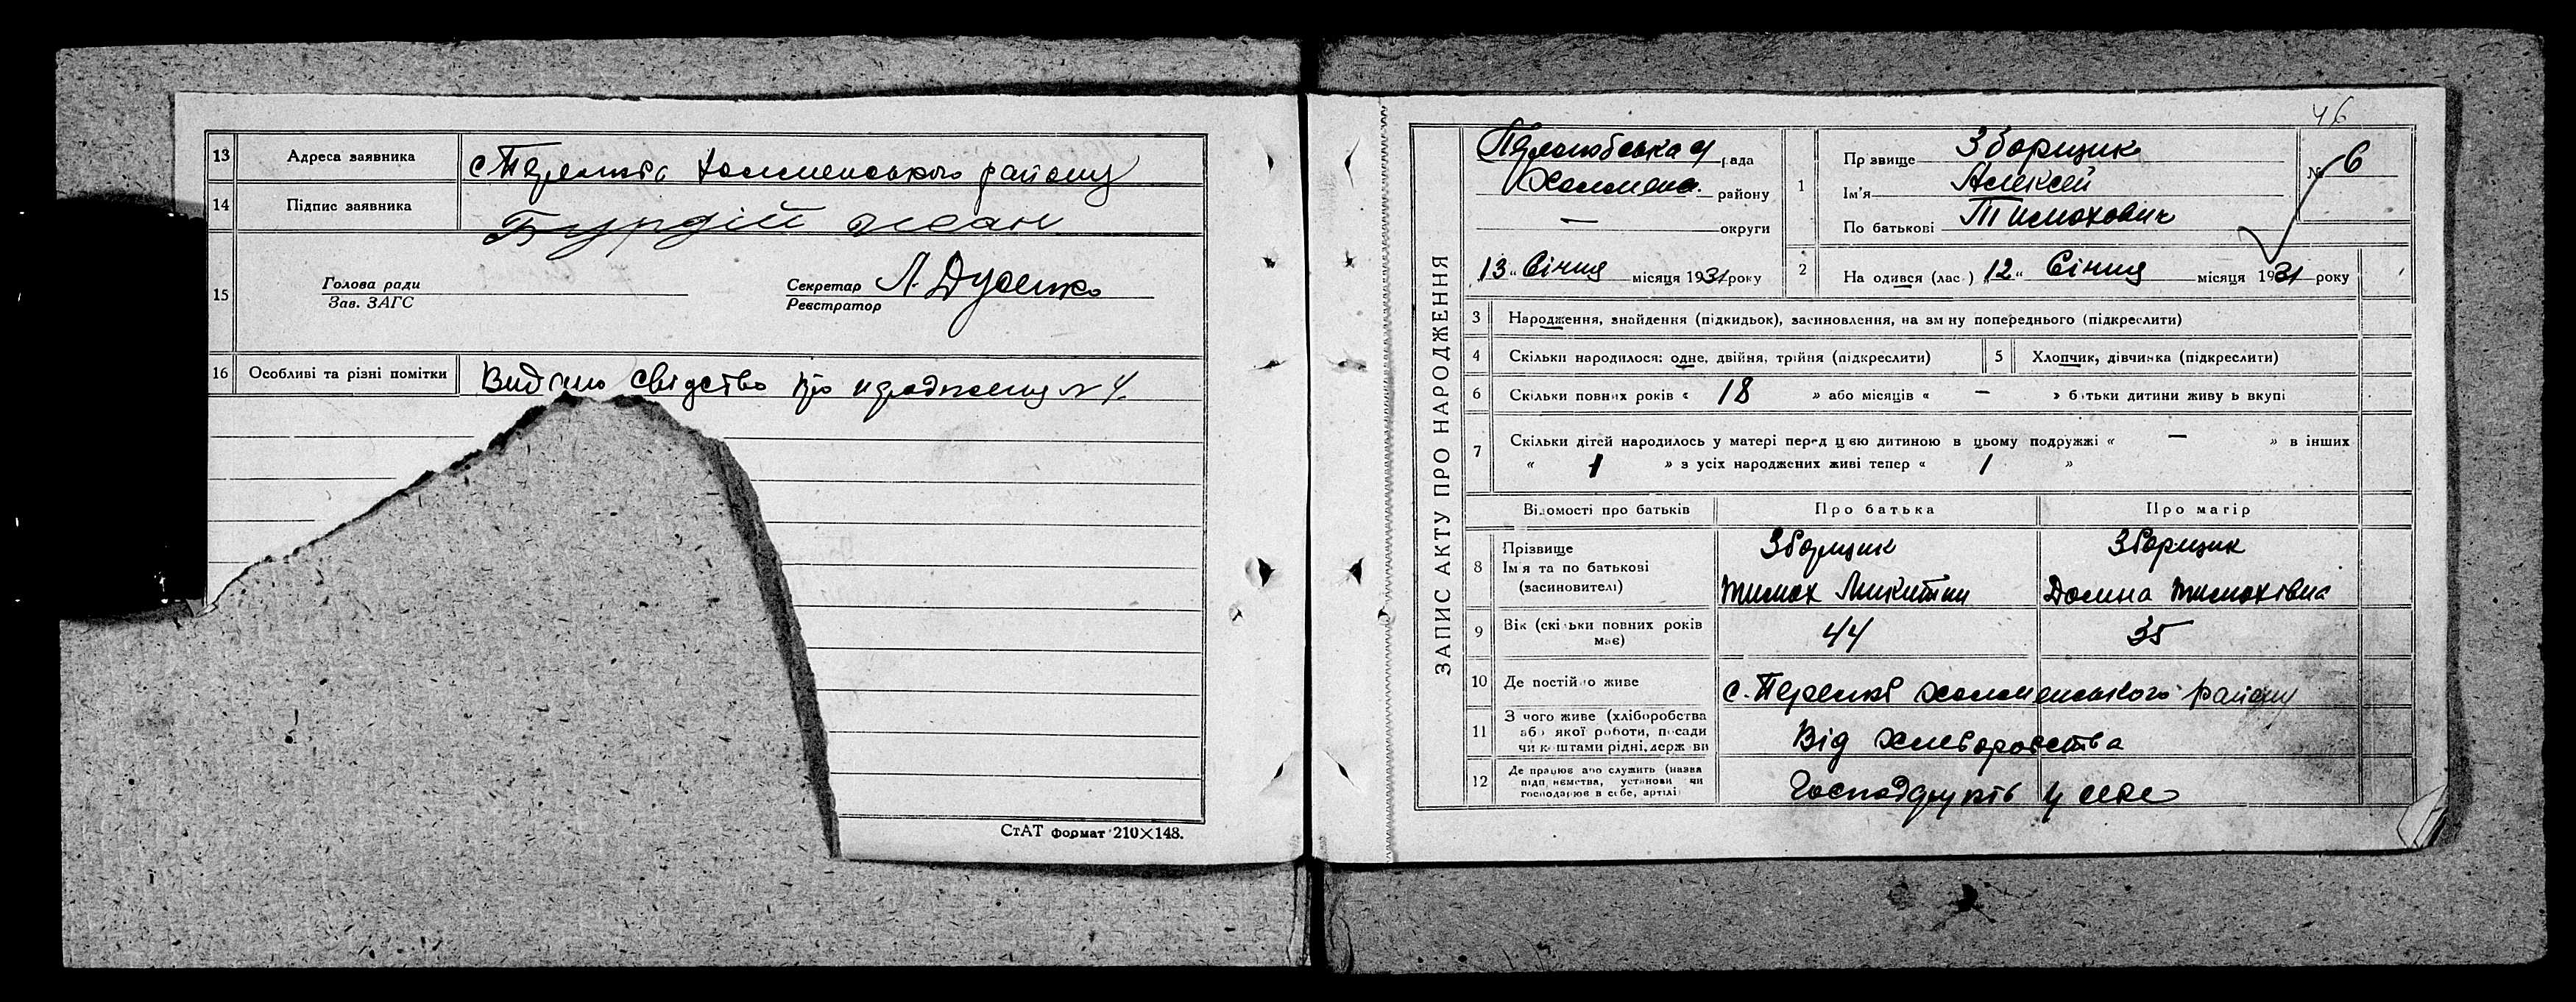 13 Адреса заявника с. Перелюб Холменського району
14 Підпис заявника Бурдій Іван
15 Голова ради
Зав. ЗАГС
Секретар Л. Дусенко
Реєстратор
16 Особливі та різні помітки Видано свідство про народження № 4.
СтАТ формат 210×148.
46
ЗАПИС АКТУ ПРО НАРОДЖЕННЯ
Перелюбська рада
Холменс. району
— округи
13 „ Січня місяця 1931 року
1 Прізвище Зборщик
Ім'я Алексей
По батькові Тимохович
№ 6
2 На одився (лас ) „ 12 “ Січня місяця 1931 року
3 Народження, знайдення (підкидьок), засиновлення, на зм ну попереднього (підкреслити)
4 Скільки народилося: одне, двійня, трійня (підкреслити)
5 Хлопчик, дівчинка (підкреслити)
6 Скільки повних років « 18 » або місяців « — » б тьки дитини живу ь вкупі
7 Скільки дітей народилось у матері перед цією дитиною в цьому подружжі « — » в інших
« 1 » з усіх народжених живі тепер « 1 »
Відомості про батьків Про батька Про матір
8 Прізвище Зборщик Зборщик
Ім'я та по батькові
(засиновителі) Тимох Микитин Домна Тимохівна
9 Вік (скільки повних років
має) 44 35
10 Де постійно живе с. Перелюб Холменського району
11 З чого живе (хліборобства
або якої роботи, посади
чи коштами рідні, держ ви Від хлеборобства
12 Де працює або служить (назва
підп иємства, установи чи
господарює в себе, артілі) Господарують у себе